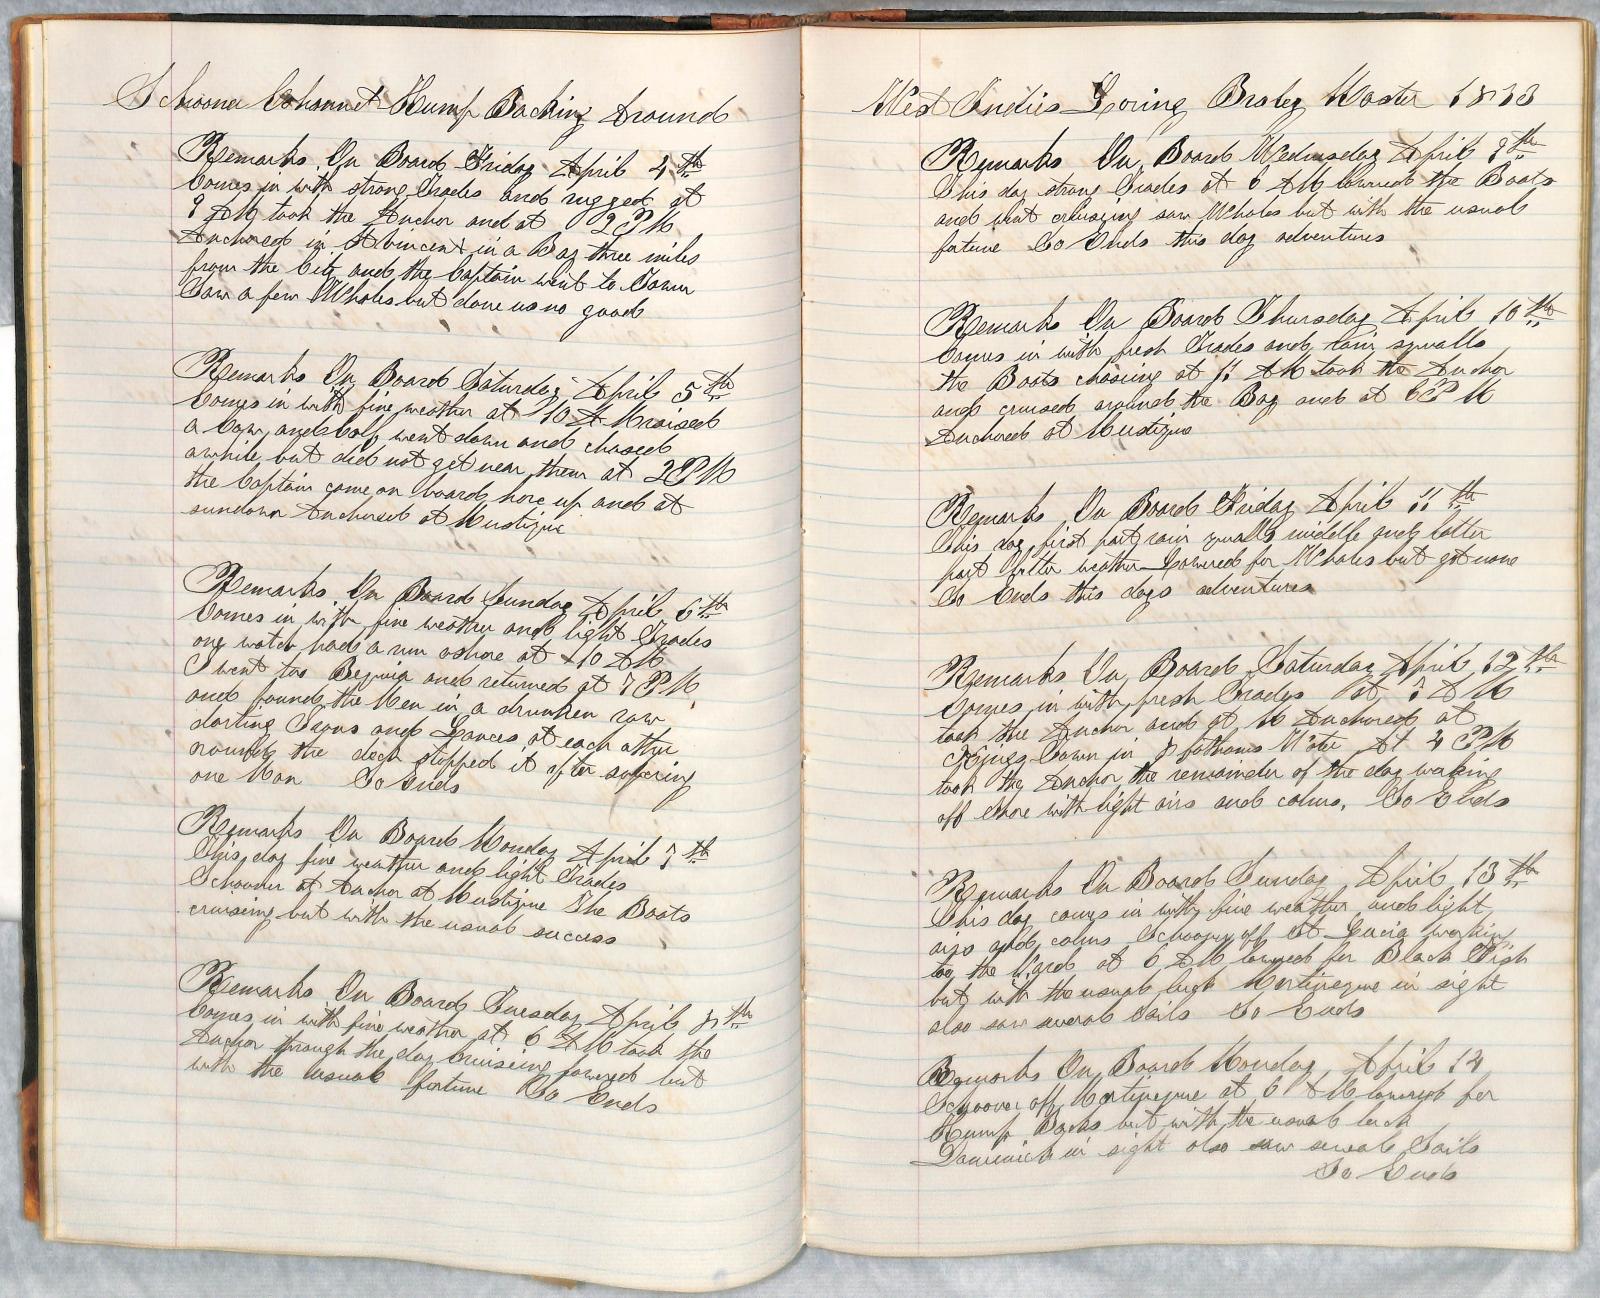 Schooner Cohannet Hump Backing Around
Remarks On Board Friday April 4th
Comes in with strong Trades and rugged at
9 AM took the Anchor and at 2 PM
Anchored in St Vincent in a Bay three miles
from the City and the Captain went to Town
Saw a few Whales but done us no good
Remarks On Board Saturday April 5th
Comes in with fine weather at 10 A M raised
a Cow and Calf went down and chased
awhile but did not get near them at 2 PM
the Captain came on board hove up and at
sundown Anchored at Mustique
Remarks On Board Sunday April 6th
Comes in with fine weather and light Trades
one watch had a run ashore at 10 AM
I went too Bequia and returned at 7 PM
and found the Men in a drunken row
darting Irons and Lances at each other
round the deck stopped it after
one Man So Ends
Remarks On Board Monday April 7th
This day fine weather and light Trades
Schooner at Anchor at Mustique The Boats
cruising but with the usual success
Remarks On Board Tuesday April 8th
Comes in with fine weather at 6 AM took the
Anchor through the day Cruising lowered but
with the usual fortune So Ends
West Indies Loring Braley Master 1873
Remarks On Board Wednesday April 9th
This day strong Trades at 6 AM lowered the Boats
and went cruising saw Whales but with the usual
fortune So Ends this day adventures
Remarks On Board Thursday April 10th
Comes in with fresh Trades and rain squalls
the Boats chasing at 11 AM took the Anchor
and cruised around the Bay and at 6 PM
Anchored at Mustique
Remarks On Board Friday April 11th
This day first part rain squalls middle and latter
part better weather Lowered for Whales but got none
So Ends this days adventures
Remarks On Board Saturday April 12th
Comes in with fresh Trades at 7 AM
took the Anchor and at M Anchored at
Kings Town in 8 fathoms Water At 4 PM
took the Anchor the remainder of the day working
off Shore with light airs and calms. So Ends
Remarks On Board Sunday April 13th
This day comes in with fine weather and light
airs and calms Schooner off St Lucia working
too the Nard at 6 AM lowered for Black Fish
but with the usual luck Martineque in sight
also saw several Sails So Ends
Remarks On Board Monday April 14
Schooner off Martineque at 6 AM lowered for
Hump Backs but with the usual luck
Daminick in sight also saw several Sails
So Ends